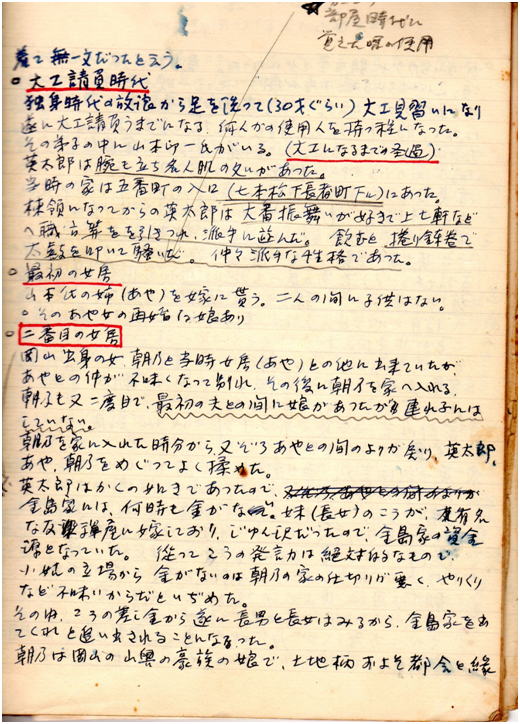 部屋時代に
覚えた味の使用
着て無一文だったと云う。
○大工請負時代
独身時代の放浪から足を洗って(30才ぐらい)大工見習いになり
遂に大工請負うまでになる、何人かの使用人を持つ程になった。
その弟子の中に山本卯一氏がいる。(大工になるまでの圣過)
英太郎は腕も立ち名人肌の処があった。
当時の家は五番町の入口(七本松下長者町下ル)にあった。
棟領になってからの英太郎は大番振舞いが好きで上七軒など
へ職方等を引きつれ、派手に遊んだ。飲むと捲り鉢巻で
太鼓を叩いて騒いだ。仲々派手な性格であった。
○最初の女房
山本氏の姉(あや)を嫁に貰う。二人の間に子供はない。
○そのあや女の再婚に娘あり
○二番目の女房
岡山出身の女、朝乃と当時女房(あや)との他に出来ていたが、
あやとの仲が不味くなって別れ、その後に朝乃を家へ入れる。
朝乃も又二度目で、最初の夫との間に娘があったが連れ子には
していない。
朝乃を家に入れた時分から、又ぞろあやとの間のよりが戻り、英太郎、
あや、朝乃をめぐってよく揉めた。
英太郎はかくの如きであったので、
金島家には、何時も金がない。妹(長女)のこうが、有名
な友禅座に嫁しており、じゅん沢だったので金島家の資金
源となっていた。従ってこうの発言力は絶対的なもので、
小姑の立場から金がないのは朝乃の家の仕切りが悪く、やりくり
など不味いからだといぢめた。
その内、こうの差し金から遂に長男と長女はみるから、金島家を出
てくれと追い出されることになった。
朝乃は岡山の山奥の豪族の娘で、土地柄およそ都会と縁